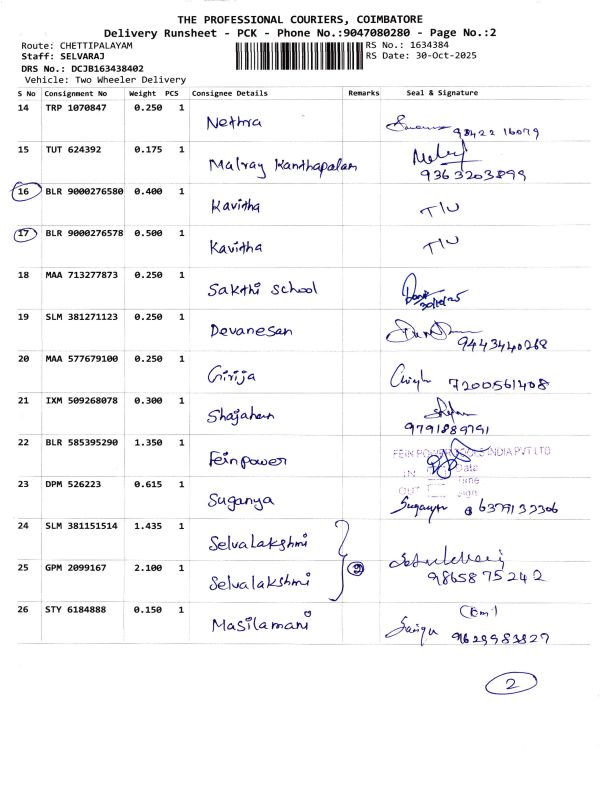 THE PROFESSIONAL COURIERS, COIMBATORE
Delivery Runsheet - PCK - Phone No.:9047080280 - Page No.:2
Route: CHETTIPALAYAM RS No.: 1634384
Staff: SELVARAJ RS Date: 30-Oct-2025
DRS No.: DCJB163438402
Vehicle: Two Wheeler Delivery
S No Consignment No Weight PCS Consignee Details Remarks Seal & Signature
14 TRP 1070847 0.250 1 Nethra 98422 16079
15 TUT 624392 0.175 1 Malray Kanthapalam 9363203899
16 BLR 9000276580 0.400 1 Kavitha T/U
17 BLR 9000276578 0.500 1 Kavitha T/U
18 MAA 713277873 0.250 1 Sakthi School 30/10/25
19 SLM 381271123 0.250 1 Devanesan 9443440268
20 MAA 577679100 0.250 1 Girija 7200561408
21 IXM 509268078 0.300 1 Shajahan 9791889791
22 BLR 585395290 1.350 1 Feinpower FEIN POWER TOOLS INDIA PVT LTD
IN Date
Time
OUT Sign
23 DPM 526223 0.615 1 Suganya 6379132306
24 SLM 381151514 1.435 1 Selvalakshmi
25 GPM 2099167 2.100 1 Selvalakshmi 2 98658 75242
26 STY 6184888 0.150 1 Masilamani 9629983827
2